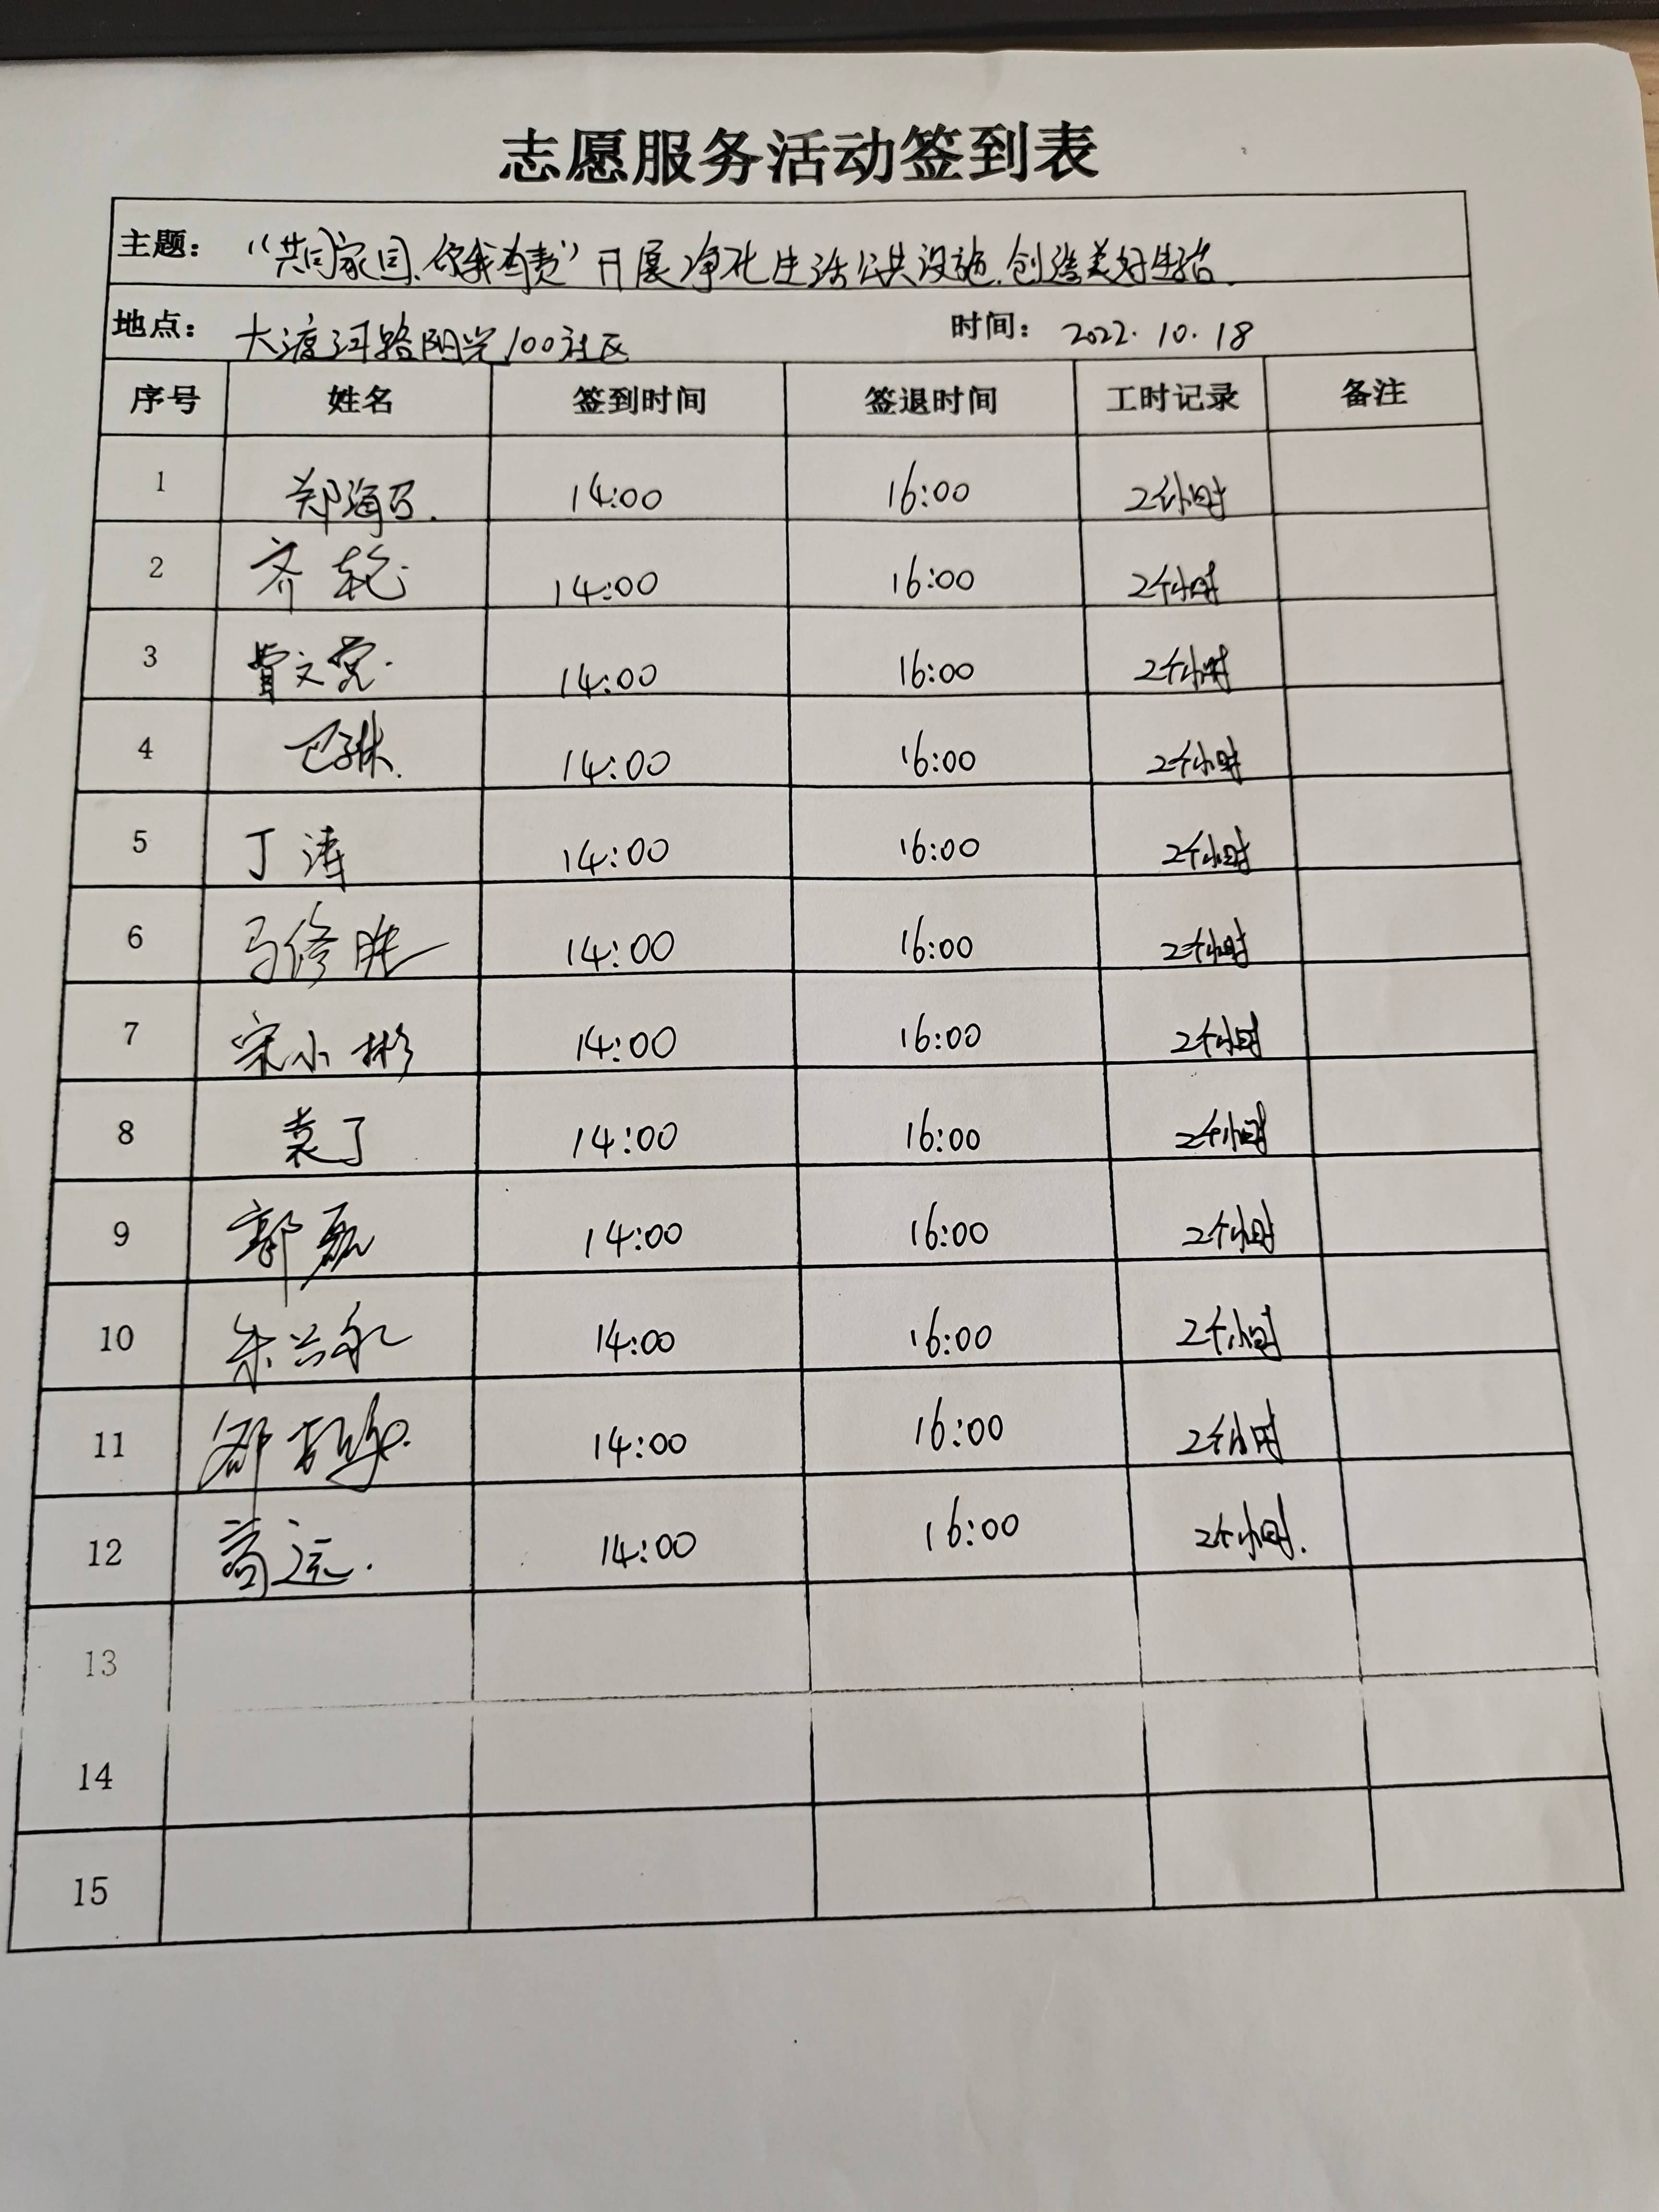 志愿服务活动签到表
主题： “共同家园、你我有责”开展净化生活公共设施、创造美好生活.
地点： 大渡河路阳光100社区 时间： 2022.10.18
序号 姓名 签到时间 签退时间 工时记录 备注
1 郑海 14:00 16:00 2个小时
2 齐 14:00 16:00 2个小时
3 文 14:00 16:00 2个小时
4 14:00 16:00 2个小时
5 丁涛 14:00 16:00 2个小时
6 马修胜 14:00 16:00 2个小时
7 宋小彬 14:00 16:00 2个小时
8 袁丁 14:00 16:00 2个小时
9 郭磊 14:00 16:00 2个小时
10 朱兴 14:00 16:00 2个小时
11 14:00 16:00 2个小时
12 高远. 14:00 16:00 2个小时.
13
14
15